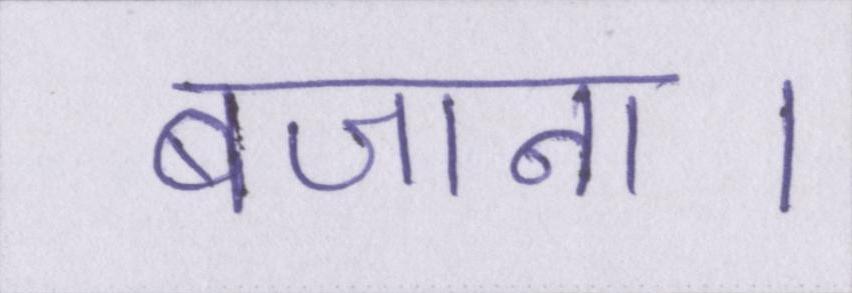 बजाना।